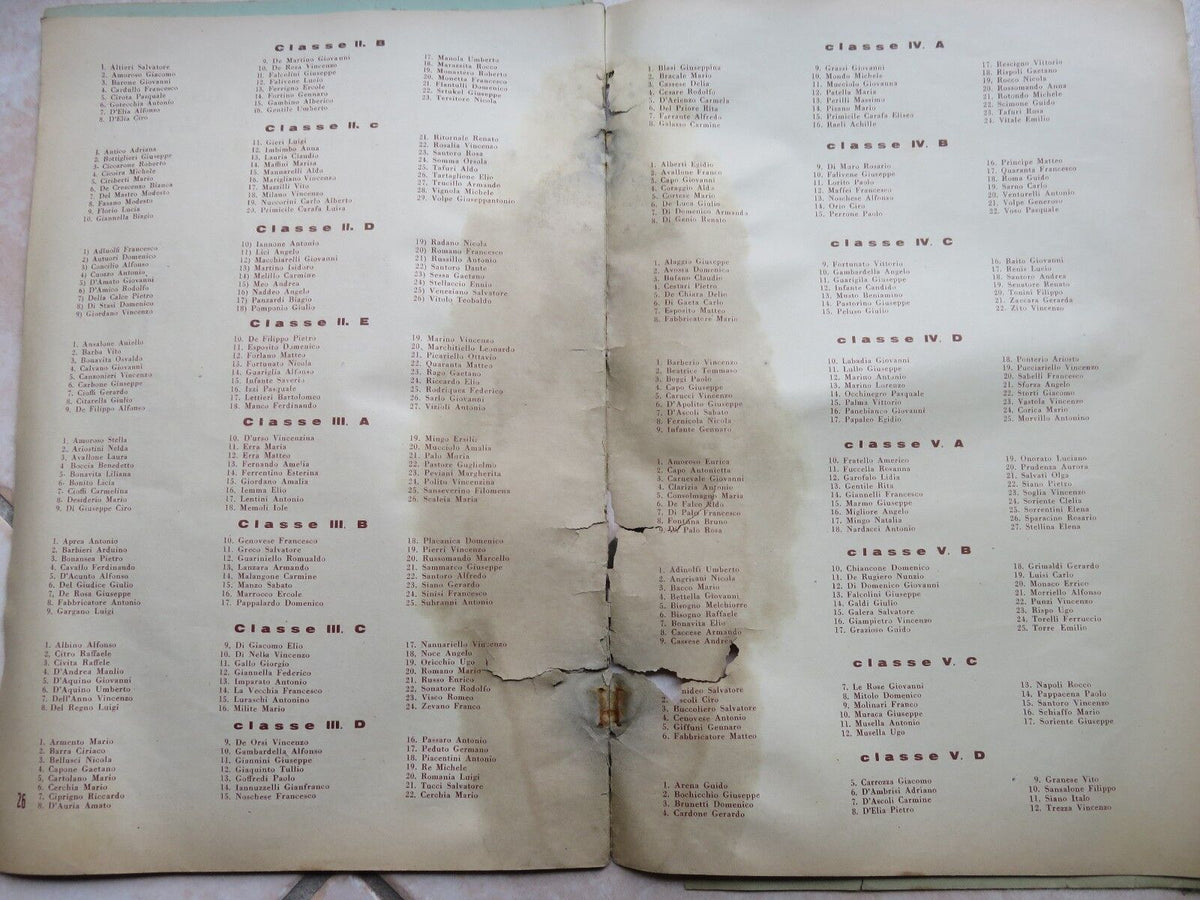 Classe II. B
1. Altieri Salvatore
2. Amoroso Giacomo
3. Barone Giovanni
4. Cardullo Francesco
5. Cirota Pasquale
6. Gotecchia Antonio
7. D'Elia Alfonso
8. D'Elia Ciro
9. De Martino Giovanni
10. De Rosa Vincenzo
11. Falcolini Giuseppe
12. Falivene Lucio
13. Ferrigno Ercole
14. Fortino Gennaro
15. Gambino Alberico
16. Gentile Umberto
17. Manola Umberto
18. Marazzita Rocco
19. Monastero Roberto
20. Monetta Francesco
21. Plantulli Domenico
22. Sztukel Giuseppe
23. Tersitore Nicola
Classe II. c
1. Antico Adriana
2. Bottiglieri Giuseppe
3. Ciccarone Roberto
4. Cicoira Michele
5. Ciriberti Mario
6. De Crescenzo Bianca
7. Del Mastro Modesto
8. Fasano Modesto
9. Florio Lucia
10. Giannella Biagio
11. Gieri Luigi
12. Imbimbo Anna
13. Lauria Claudio
14. Maffini Marisa
15. Manuarelli Aldo
16. Marigliano Vincenzo
17. Mazzilli Vito
18. Milano Vincenzo
19. Nuccorini Carlo Alberto
20. Primicile Carafa Luisa
21. Ritornale Renato
22. Rosalia Vincenzo
23. Santoro Rosa
24. Somma Orsola
25. Tafuri Aldo
26. Tartaglione Elio
27. Trucillo Armando
28. Vignola Michele
29. Volpe Giuseppantonio
Classe II. D
1) Adinolfi Francesco
2) Autuori Domenico
3) Concilio Alfonso
4) Cuozzo Antonio
5) D'Amato Giovanni
6) D'Amico Rodolfo
7) Della Calce Pietro
8) Di Stasi Domenico
9) Giordano Vincenzo
10) Iannone Antonio
11) Lici Angelo
12) Macchiarelli Giovanni
13) Martino Isidoro
14) Melillo Carmine
15) Meo Andrea
16) Naddeo Angelo
17) Panzardi Biagio
18) Pomponio Giulio
19) Radano Nicola
20) Romano Francesco
21) Russillo Antonio
22) Santoro Dante
23) Sessa Gaetano
24) Stellaccio Ennio
25) Veneziano Salvatore
26) Vitolo Teobaldo
Classe II. E
1. Ansalone Aniello
2. Barba Vito
3. Bonavita Osvaldo
4. Calvano Giovanni
5. Canzonieri Vincenzo
6. Carbone Giuseppe
7. Cioffi Gerardo
8. Citarella Giulio
9. De Filippo Alfonso
10. De Filippo Pietro
11. Esposito Domenico
12. Forlano Matteo
13. Fortunato Nicola
14. Guariglia Alfonso
15. Infante Saverio
16. Izzi Pasquale
17. Lettieri Bartolomeo
18. Manco Ferdinando
19. Marino Vincenzo
20. Marchitiello Leonardo
21. Picariello Ottavio
22. Quaranta Matteo
23. Rago Gaetano
24. Riccardo Elio
25. Rodriquez Federico
26. Sarlo Giovanni
27. Vizioli Antonio
Classe III. A
1. Amoroso Stella
2. Ariostini Nelda
3. Avallone Laura
4. Boccia Benedetto
5. Bonavita Liliana
6. Bonito Licia
7. Cioffi Carmelina
8. Desiderio Mario
9. Di Giuseppe Ciro
10. D'urso Vincenzina
11. Erra Maria
12. Erra Matteo
13. Fernando Amelia
14. Ferrentino Esterina
15. Giordano Amalia
16. Iemma Elio
17. Lentini Antonio
18. Memoli Iole
19. Mingo Ersilia
20. Mucciolo Amalia
21. Pali Maria
22. Pastore Guglielmo
23. Peviani Margherita
24. Polito Vincenzina
25. Sanseverino Filomena
26. Scaleia Maria
Classe III. B
1. Aprea Antonio
2. Barbieri Arduino
3. Bonansea Pietro
4. Cavallo Ferdinando
5. D'Acunto Alfonso
6. Del Giudice Giulio
7. De Rosa Giuseppe
8. Fabbricatore Antonio
9. Gargano Luigi
10. Genovese Francesco
11. Greco Salvatore
12. Guariniello Romualdo
13. Lanzara Armando
14. Malangone Carmine
15. Manzo Sabato
16. Marrocco Ercole
17. Pappalardo Domenico
18. Placanica Domenico
19. Pierri Vincenzo
20. Russomando Marcello
21. Sammarco Giuseppe
22. Santoro Alfredo
23. Siano Gerardo
24. Sinisi Francesco
25. Subranni Antonio
Classe III. C
1. Albino Alfonso
2. Citro Raffaele
3. Civita Raffele
4. D'Andrea Manlio
5. D'Aquino Giovanni
6. D'Aquino Umberto
7. Dell'Anno Vincenzo
8. Del Regno Luigi
9. Di Giacomo Elio
10. Di Nella Vincenzo
11. Gallo Giorgio
12. Giannella Federico
13. Imparato Antonio
14. La Vecchia Francesco
15. Luraschi Antonino
16. Milite Mario
17. Nannariello Vincenzo
18. Noce Angelo
19. Oricchio Ugo
20. Romano Mario
21. Russo Enrico
22. Sonatore Rodolfo
23. Visco Romeo
24. Zevano Franco
classe III. D
1. Armento Mario
2. Barra Ciriaco
3. Bellusci Nicola
4. Capone Gaetano
5. Cartolano Mario
6. Cerchia Mario
7. Ciprigno Riccardo
8. D'Auria Amato
9. De Orsi Vincenzo
10. Gambardella Alfonso
11. Giannini Giuseppe
12. Giaquinto Tullio
13. Goffredi Paolo
14. Iannuzzelli Gianfranco
15. Noschese Francesco
16. Passaro Antonio
17. Peduto Germano
18. Piacentini Antonio
19. Re Michele
20. Romania Luigi
21. Tucci Salvatore
22. Cerchia Mario
26
classe IV. A
1. Blasi Giuseppina
2. Bracale Mario
3. Cassese Velia
4. Cesare Rodolfo
5. D'Arienzo Carmela
6. Del Priore Rita
7. Farrante Alfredo
8. Galasso Carmine
9. Grassi Giovanni
10. Mondo Michele
11. Mucciolo Giovanni
12. Patrella Maria
13. Perilli Massimo
14. Pisano Mario
15. Primicile Carafa Eliseo
16. Raeli Achille
17. Rescigno Vittorio
18. Rispoli Gaetano
19. Rocco Nicola
20. Rossomando Anna
21. Rotondo Michele
22. Scimone Guido
23. Tafuri Rosa
24. Vitale Emilio
classe IV. B
1. Alberti Egidio
2. Avallone Franco
3. Capo Giovanni
4. Coraggio Aldo
5. Cortese Mario
6. De Luca Giulio
7. Di Domenico Armando
8. Di Genio Renato
9. Di Muro Rosario
10. Falivene Giuseppe
11. Lorito Paolo
12. Maffei Francesco
13. Noschese Alfonso
14. Orio Ciro
15. Perrone Paolo
16. Principe Matteo
17. Quaranta Francesco
18. Roma Guido
19. Sarno Carlo
20. Ventorelli Antonio
21. Volpe Generoso
22. Voso Pasquale
classe IV. C
1. Alaggio Giuseppe
2. Avossa Domenico
3. Bufano Claudio
4. Cestari Pietro
5. De Chiara Delio
6. Di Gaeta Carlo
7. Esposito Matteo
8. Fabbricatore Mario
9. Fortunato Vittorio
10. Gambardella Angelo
11. Guariglia Giuseppe
12. Infante Candido
13. Musto Beniamino
14. Pastorino Giuseppe
15. Peluso Giulio
16. Raito Giovanni
17. Renis Lucio
18. Santoro Andrea
19. Senatore Renato
20. Tonini Filippo
21. Zaccara Gerarda
22. Zito Vincenzo
classe IV. D
1. Barberio Vincenzo
2. Beatrice Tommaso
3. Boggi Paolo
4. Capo Giuseppe
5. Carucci Vincenzo
6. D'Apolito Giuseppe
7. D'Ascoli Sabato
8. Fernicola Nicola
9. Infante Gennaro
10. Labadia Giovanni
11. Lullo Giuseppe
12. Marino Antonio
13. Marino Lorenzo
14. Occhinegro Pasquale
15. Palma Vittorio
16. Panebianco Giovanni
17. Papaleo Egidio
18. Ponterio Ariosto
19. Pucciariello Vincenzo
20. Sabelli Francesco
21. Sforza Angelo
22. Storti Giacomo
23. Vastola Vincenzo
24. Corica Mario
25. Morvillo Antonino
classe V. A
1. Amoroso Enrica
2. Capo Antonietta
3. Carnevale Giovanni
4. Clarizia Antonio
5. Consolmagno Maria
6. De Falco Aldo
7. Di Palo Francesco
8. Fontana Bruno
9. Di Palo Rosa
10. Fratello Americo
11. Fuccella Rosanna
12. Garofalo Lidia
13. Gentile Rita
14. Giannelli Francesco
15. Marmo Giuseppe
16. Migliore Angelo
17. Mingo Natalia
18. Nardacci Antonio
19. Onorato Luciano
20. Prudenza Aurora
21. Salvati Olga
22. Siano Pietro
23. Soglia Vincenzo
24. Soriente Clelia
25. Sorrentini Elena
26. Sparacino Rosario
27. Stellina Elena
classe V. B
1. Adinolfi Umberto
2. Angrisani Nicola
3. Bacco Mario
4. Bettella Giovanni
5. Bisogno Melchiorre
6. Bisogno Raffaele
7. Bonavita Elio
8. Caccese Armando
9. Cassese Andrea
10. Chiancone Domenico
11. De Rugiero Nunzio
12. Di Domenico Giovanni
13. Falcolini Giuseppe
14. Galdi Giulio
15. Galera Salvatore
16. Giampietro Vincenzo
17. Grazioso Guido
18. Grimaldi Gerardo
19. Luisi Carlo
20. Monaco Errico
21. Morriello Alfonso
22. Punzi Vincenzo
23. Bispo Ugo
24. Torelli Ferruccio
25. Torre Emilio
classe V. C
Salvatore
2. Ciro
3. Buccoliero Salvatore
4. Cenovese Antonio
5. Giffuni Gennaro
6. Fabbricatore Matteo
7. Le Rose Giovanni
8. Mitolo Domenico
9. Molinari Franco
10. Muraca Giuseppe
11. Musella Antonio
12. Musella Ugo
13. Napoli Rocco
14. Pappacena Paolo
15. Santoro Vincenzo
16. Schiaffo Mario
17. Soriente Giuseppe
classe V. D
1. Arena Guido
2. Bochicchio Giuseppe
3. Brunetti Domenico
4. Cardone Gerardo
5. Carrozza Giacomo
6. D'Ambrisi Adriano
7. D'Ascoli Carmine
8. D'Elia Pietro
9. Granese Vito
10. Sansalone Filippo
11. Siano Italo
12. Trezza Vincenzo